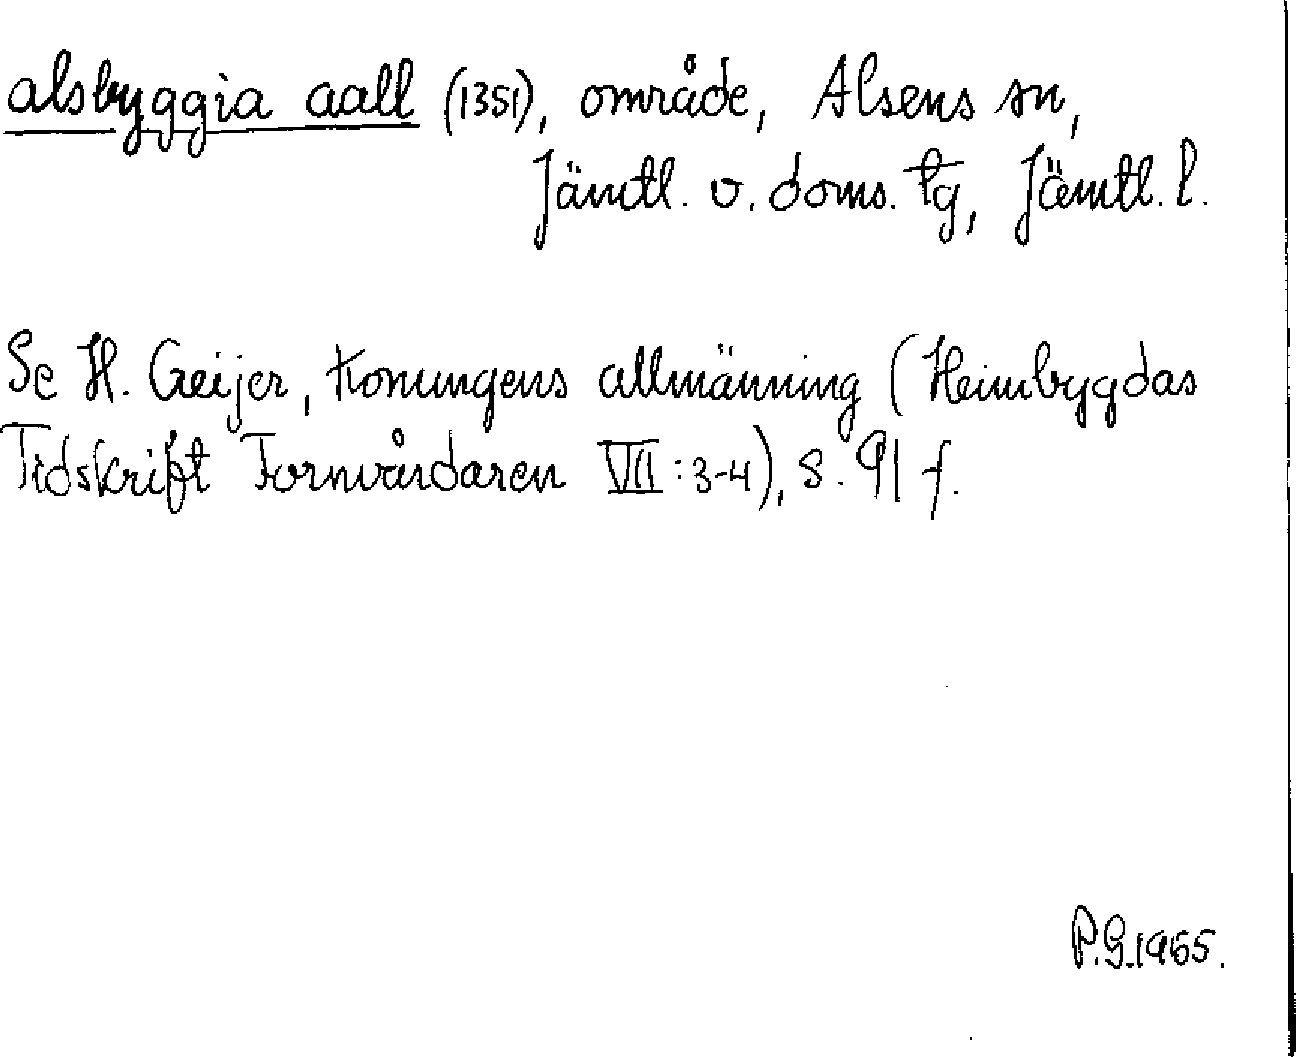 alsbyggia aall (1351), område, Alsens sn,
Jämtl. v. doms. tg, Jämtl. l.
Se H. Geijer, Konungens allmänning (Heimbygdas
Tidskrift Fornvårdaren VII:3-4), s. 91 f.
P.G. 1965.